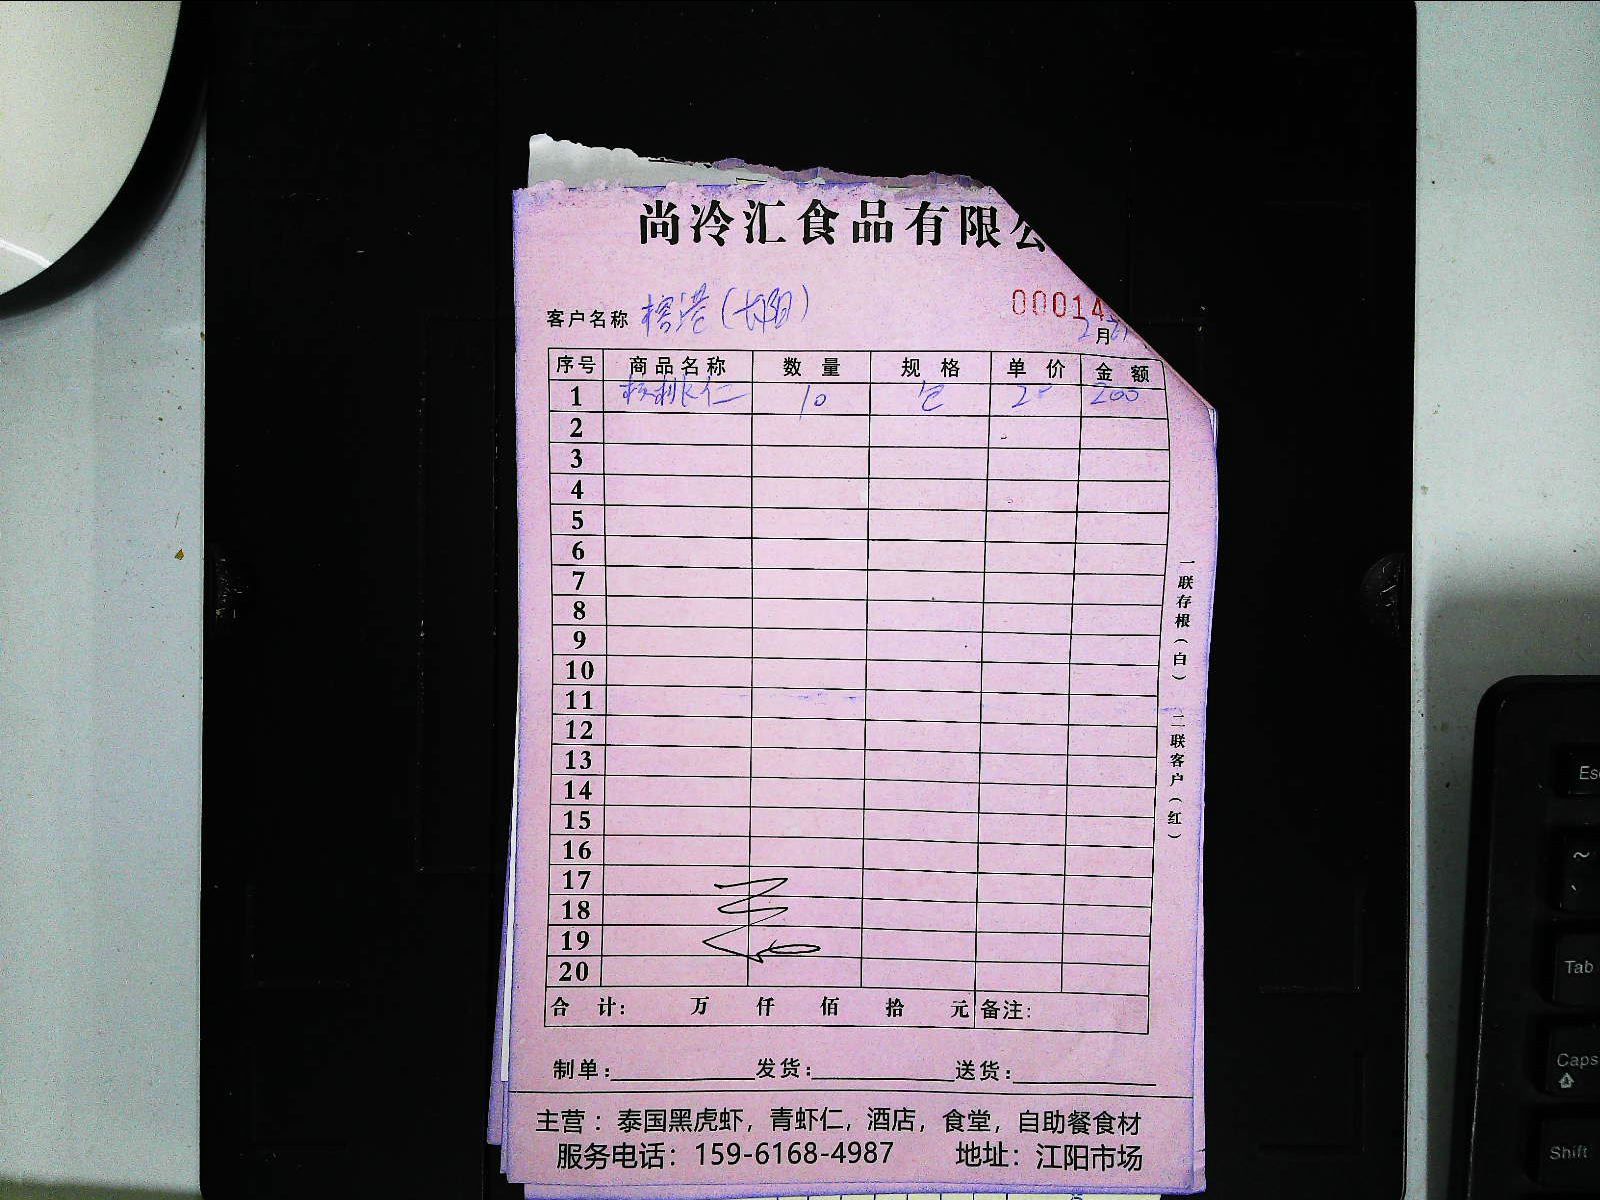 尚冷汇食品有限公
00014
客户名称 榕港(长阳)
2月
序号 商品名称 数量 规格 单价 金额
1 核桃仁 10 包 20 200
2
3
4
5
6
7
8
9
10
11
12
13
14
15
16
17
18
19
20
合计: 万 仟 佰 拾 元 备注:
制单: 发货: 送货:
主营:泰国黑虎虾,青虾仁,酒店,食堂,自助餐食材
服务电话:159-6168-4987 地址:江阳市场
一联存根(白) 二联客户(红)
Esc
~
Tab
Caps
Shift